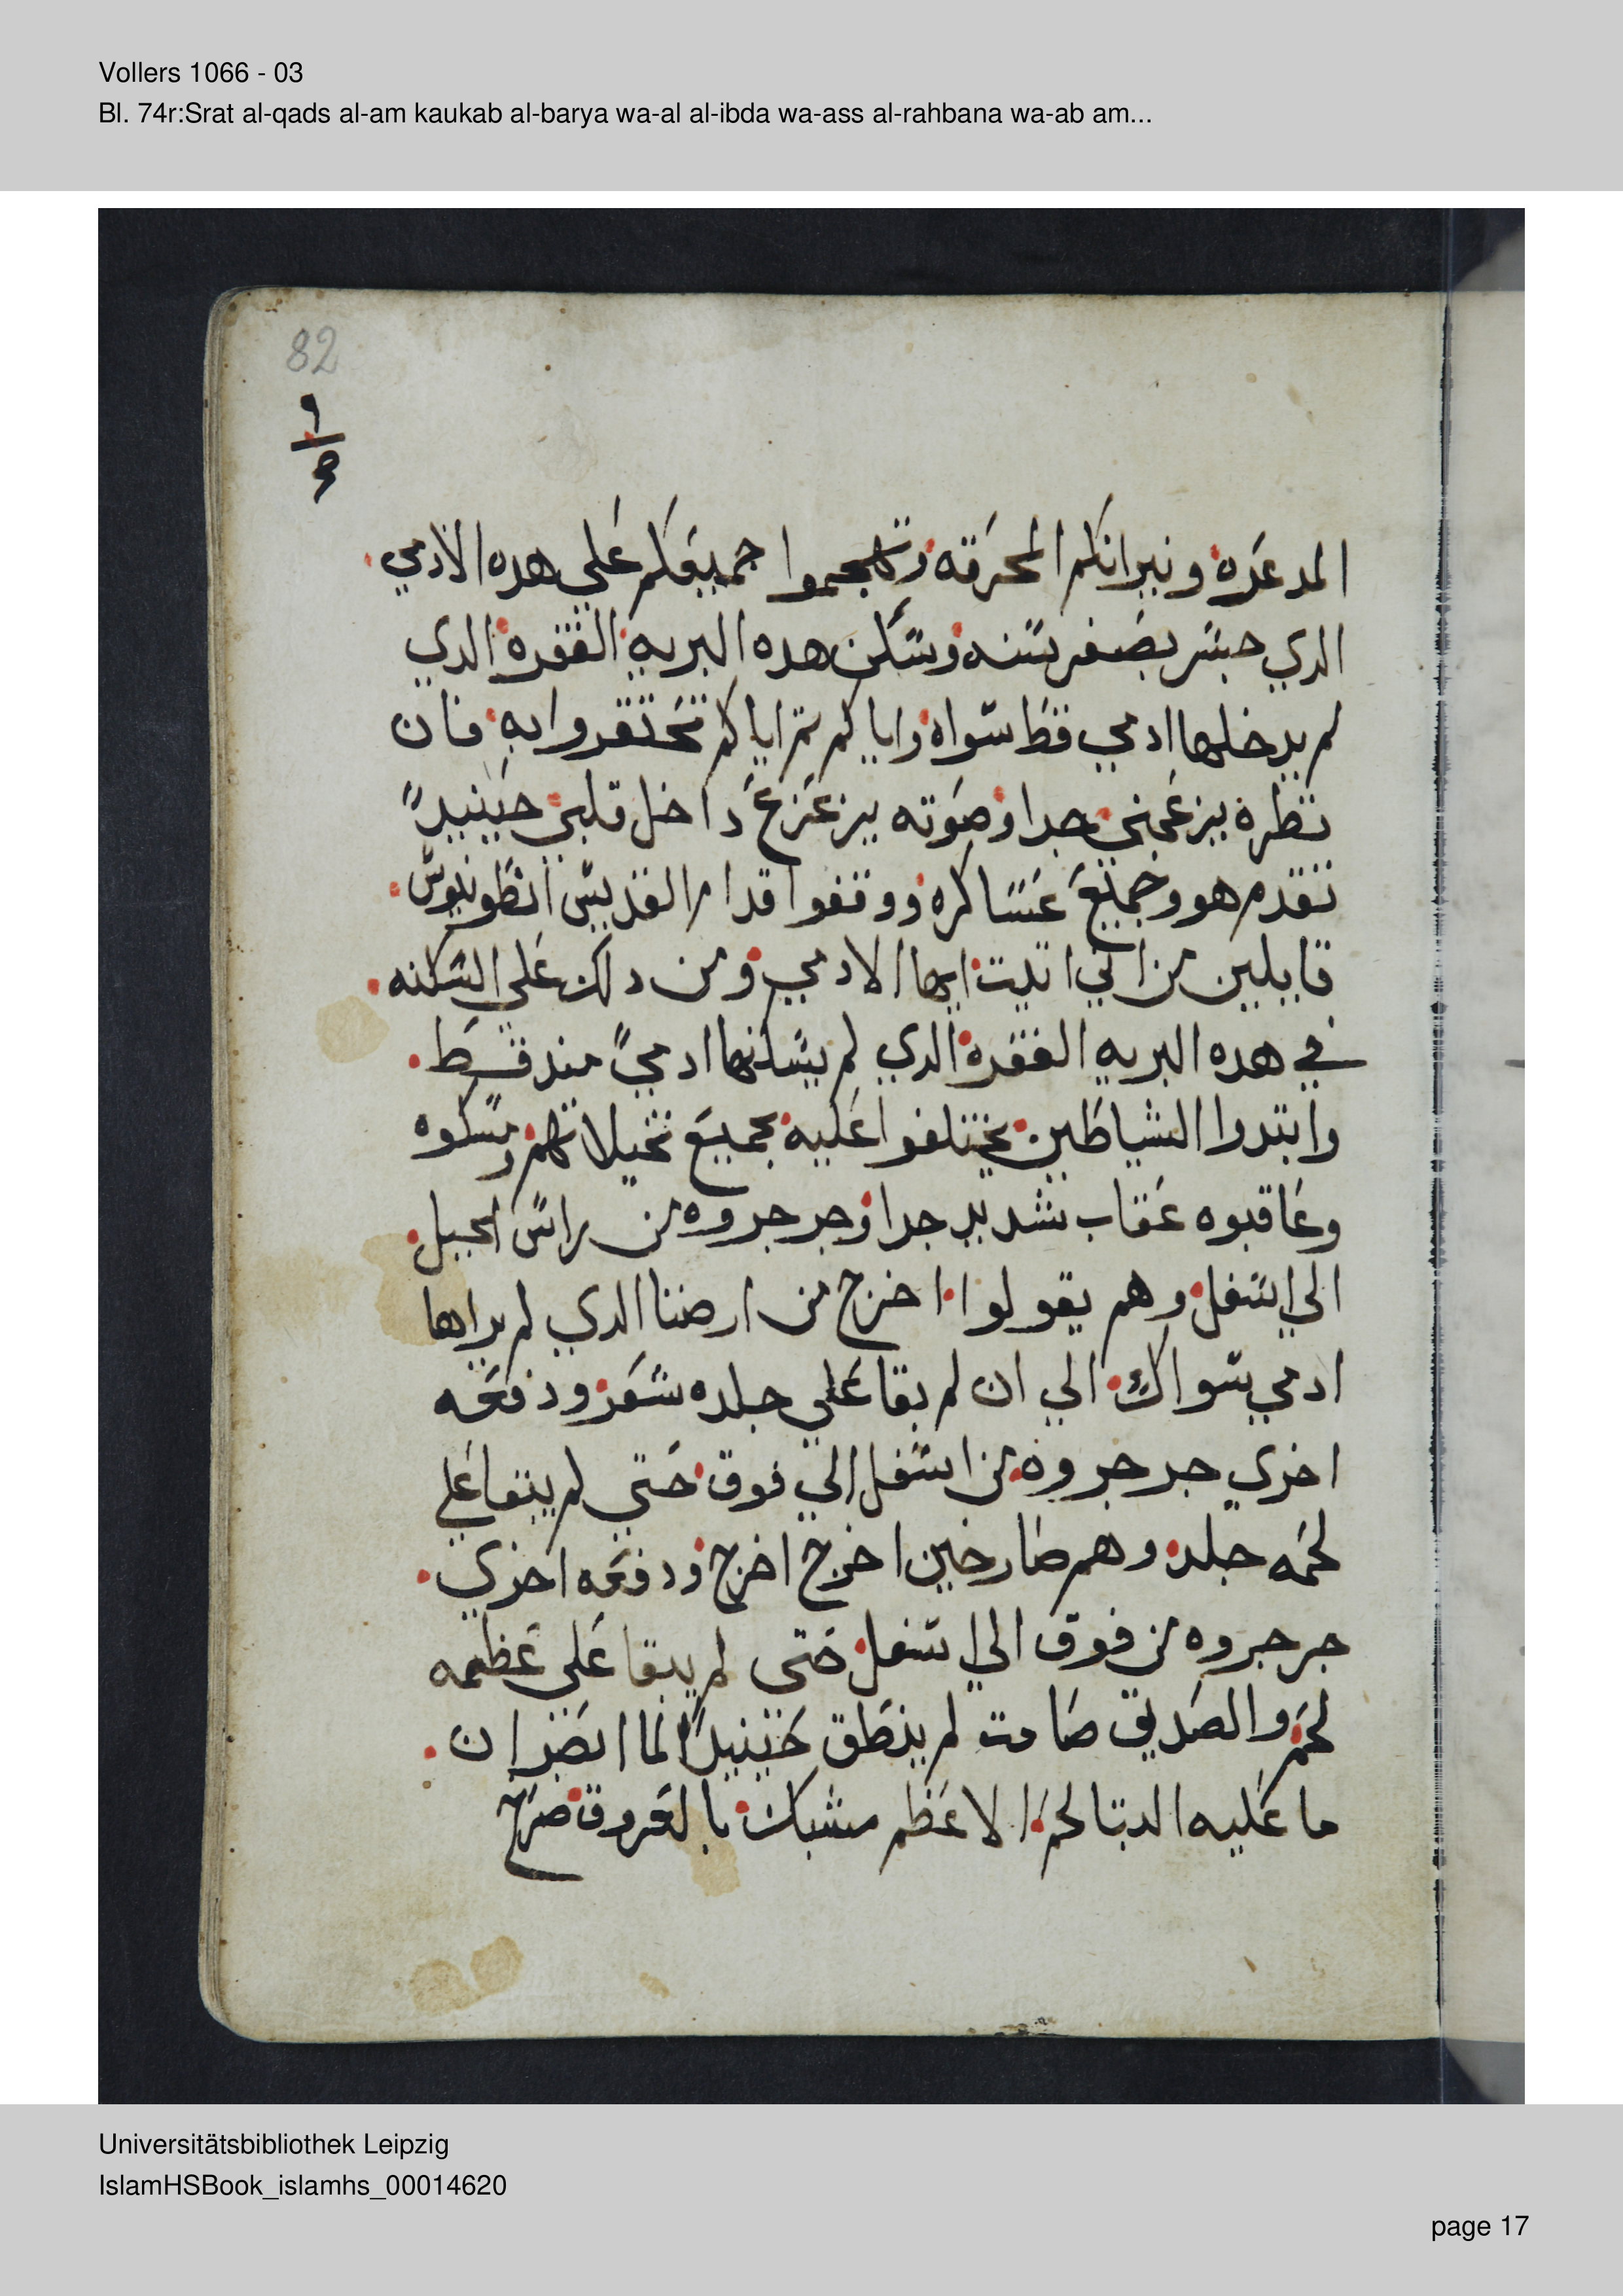 Vollers 1066 - 03
Bl. 74r:Srat al-qads al-am kaukab al-barya wa-al al-ibda wa-ass al-rahbana wa-ab am...
82
المدعره ونيرانكم المحرقه وتهجموا جميعكم علي هده الادمي
الدي جسر بصغر سنه وسكن هده البريه القفره الدي
لم يدخلها ادمي قط سواه واياكم تم اياكم تحتقروا به فان
نظره يزعجني جدا وصوته يزعزع داخل قلبي حينيدً
تقدم هو وجميع عساكره ووقفوا قدام القديس انطونيوس
قايلين من اين اتيت ايها الادمي ومن دلك علي السكنه
في هده البريه القفره الدي لم يسكنها ادميً مند قط
وابتدوا الشياطين يختلفوا عليه بجميع تخيلاتهم ومسكوه
وعاقبوه عقاب شديد جدا وجرجروه من راس الجبل
الي اسفل وهم يقولوا اخرج من ارضنا الدي لم يراها
ادمي سواك الي ان لم بقا علي جلده شعر ودفعه
اخري جرجروه من اسفل الي فوق حتي لم يبقا علي
لحمه جلد وهم صارخين اخرج اخرج ودفعه اخري
جرجروه من فوق الي اسفل حتي لم يبقا علي عظمه
لحم والصديق صامت لم ينطق حينيدً لما ابصر ان
ما عليه البتا لحم الا عظم مشبك بالعروق صرخ
Universitätsbibliothek Leipzig
IslamHSBook_islamhs_00014620
page 17